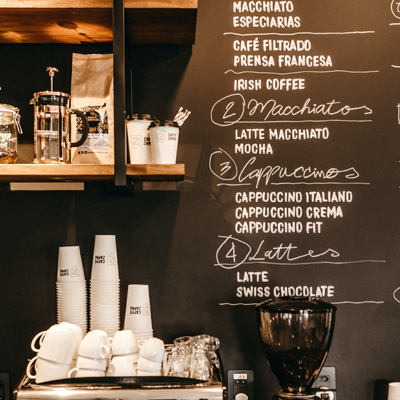 MACCHIATO
ESPECIARIAS
CAFÉ FILTRADO
PRENSA FRANCESA
IRISH COFFEE
2 Macchiatos
LATTE MACCHIATO
MOCHA
3 Cappuccinos
CAPPUCCINO ITALIANO
CAPPUCCINO CREMA
CAPPUCCINO FIT
4 Lattes
LATTE
SWISS CHOCOLATE